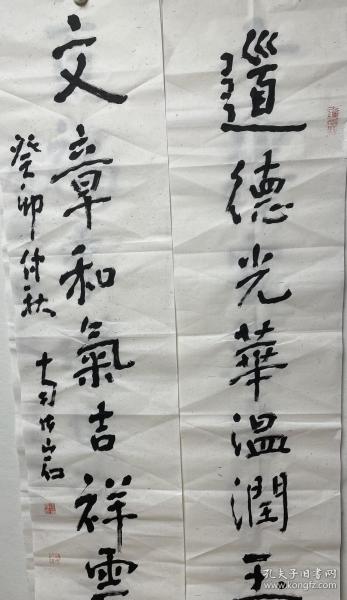 道德光華温潤玉
文章和氣吉祥雲
癸卯仲秋
孔夫子旧书网
www.kongfz.com